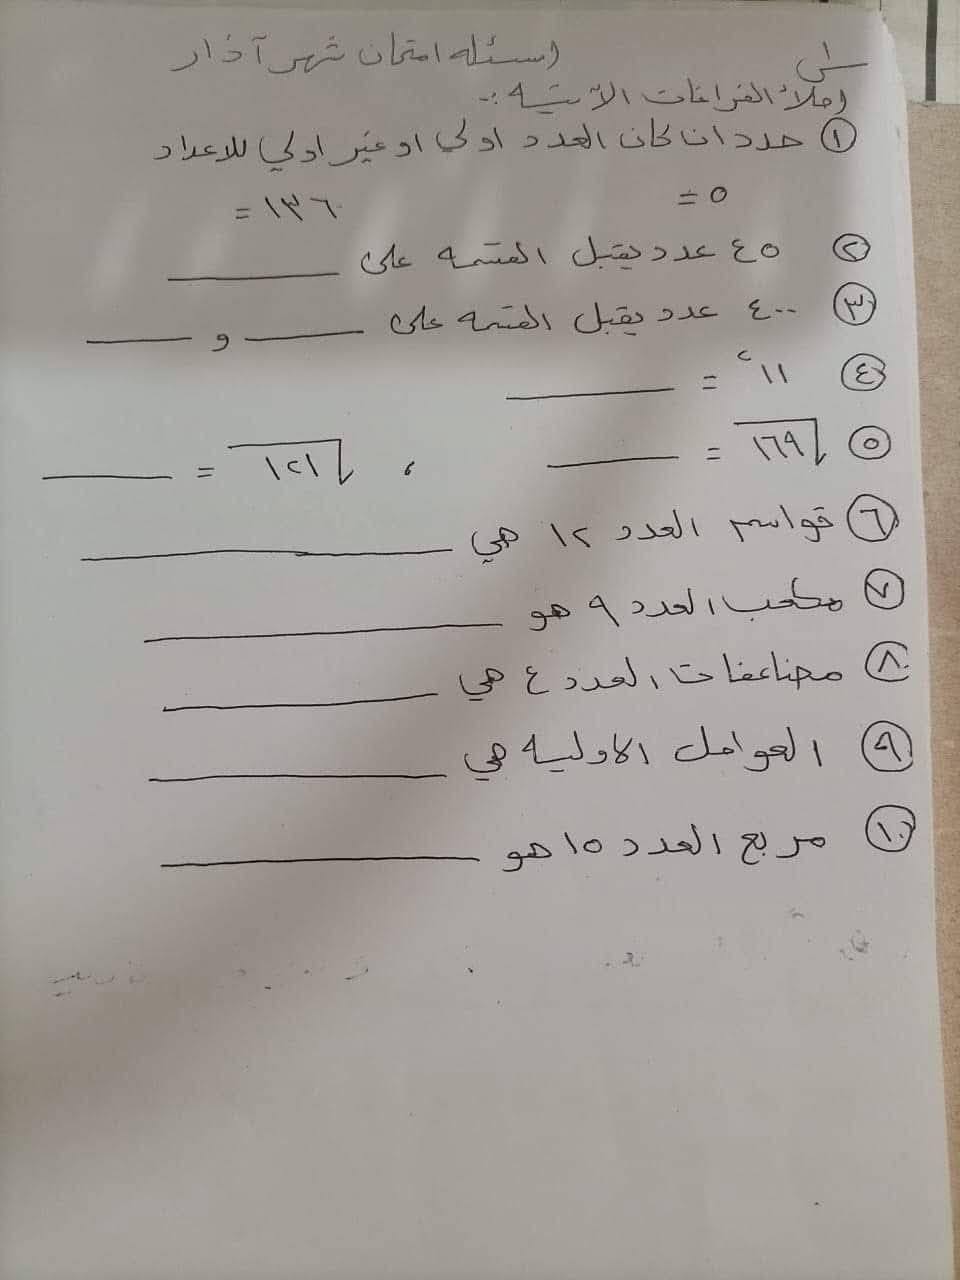 اسئله امتحان شهر آذار
س١
إملأ الفراغات الآتيه :-
١ حدد ان كان العدد اولي او غير اولي للاعداد
٥ = ١٣٦ =
٢ ٤٥ عدد يقبل القسمه على ______
٣ ٤٠٠ عدد يقبل القسمه على ______ و ______
٤ ١١² = ______
٥ √١٦٩ = ______ ، √١٢١ = ______
٦ قواسم العدد ١٢ هي ______
٧ مكعب العدد ٩ هو ______
٨ مضاعفات العدد ٤ هي ______
٩ العوامل الاوليه هي ______
١٠ مربع العدد ١٥ هو ______